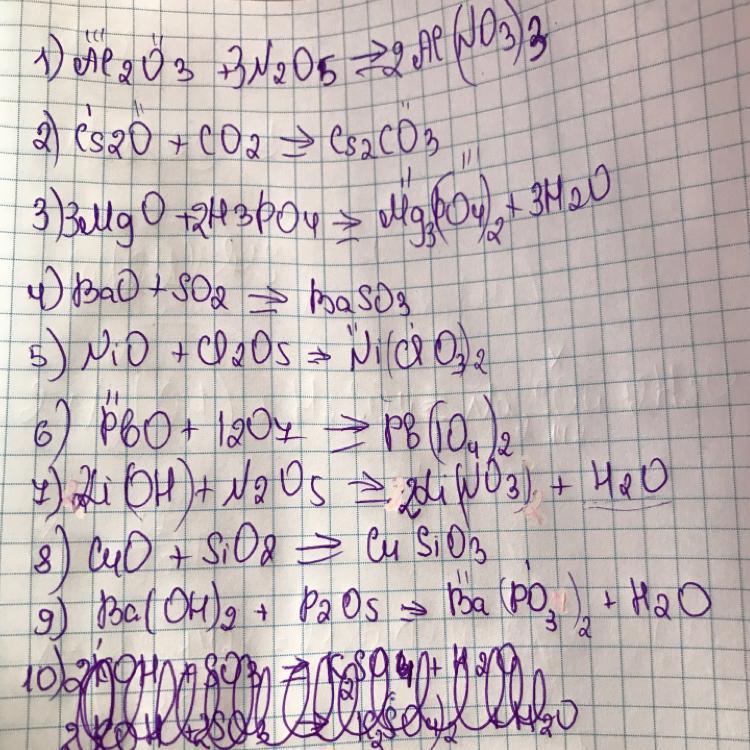 1) Al2O3 + 3N2O5 ⇒ 2Al(NO3)3
2) Cs2O + CO2 ⇒ Cs2CO3
3) 3MgO + 2H3PO4 ⇒ Mg3(PO4)2 + 3H2O
4) BaO + SO2 ⇒ BaSO3
5) NiO + Cl2O5 ⇒ Ni(ClO3)2
6) PbO + I2O7 ⇒ Pb(IO4)2
7) 2Li(OH) + N2O5 ⇒ 2Li(NO3) + H2O
8) CuO + SiO2 ⇒ CuSiO3
9) Ba(OH)2 + P2O5 ⇒ Ba(PO3)2 + H2O
10)